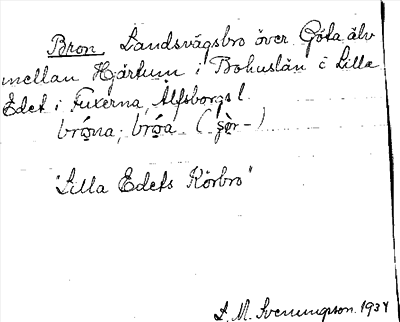 Bron Landsvägsbro över Göta älv
mellan Hjärtum i Bohuslän o Lilla
Edet i Fuxerna, Älfsborgs l.
bróna, bróa (sò̤r-)
"Lilla Edets Körbro"
S. M. Svenungson. 1934